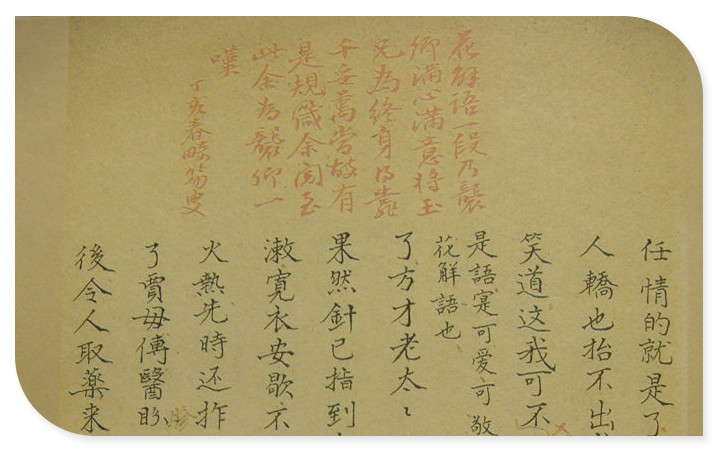 花解語一段乃襲
卿滿心滿意將玉
兄為終身得靠
千妥萬當故有
是規箴余閱至
此余為襲卿一
嘆
丁亥春畸笏叟
任情的就是了
人轎也抬不出
笑道这我可不
是語寔可爱可敬
花解語也
了方才老太〻
果然針已指到
漱寬衣安歇不
火熱先時还拃
了賈毋傳醫胗
後令人取藥来